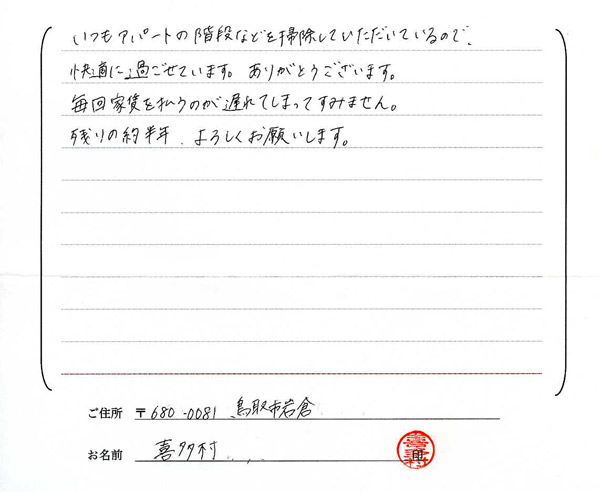 いつもアパートの階段などを掃除していただいているので、
快適に過ごせています。ありがとうございます。
毎回家賃を払うのが遅れてしまってすみません。
残りの約半年、よろしくお願いします。
ご住所 〒680-0081 鳥取市岩倉
お名前 喜多村 印
喜多村